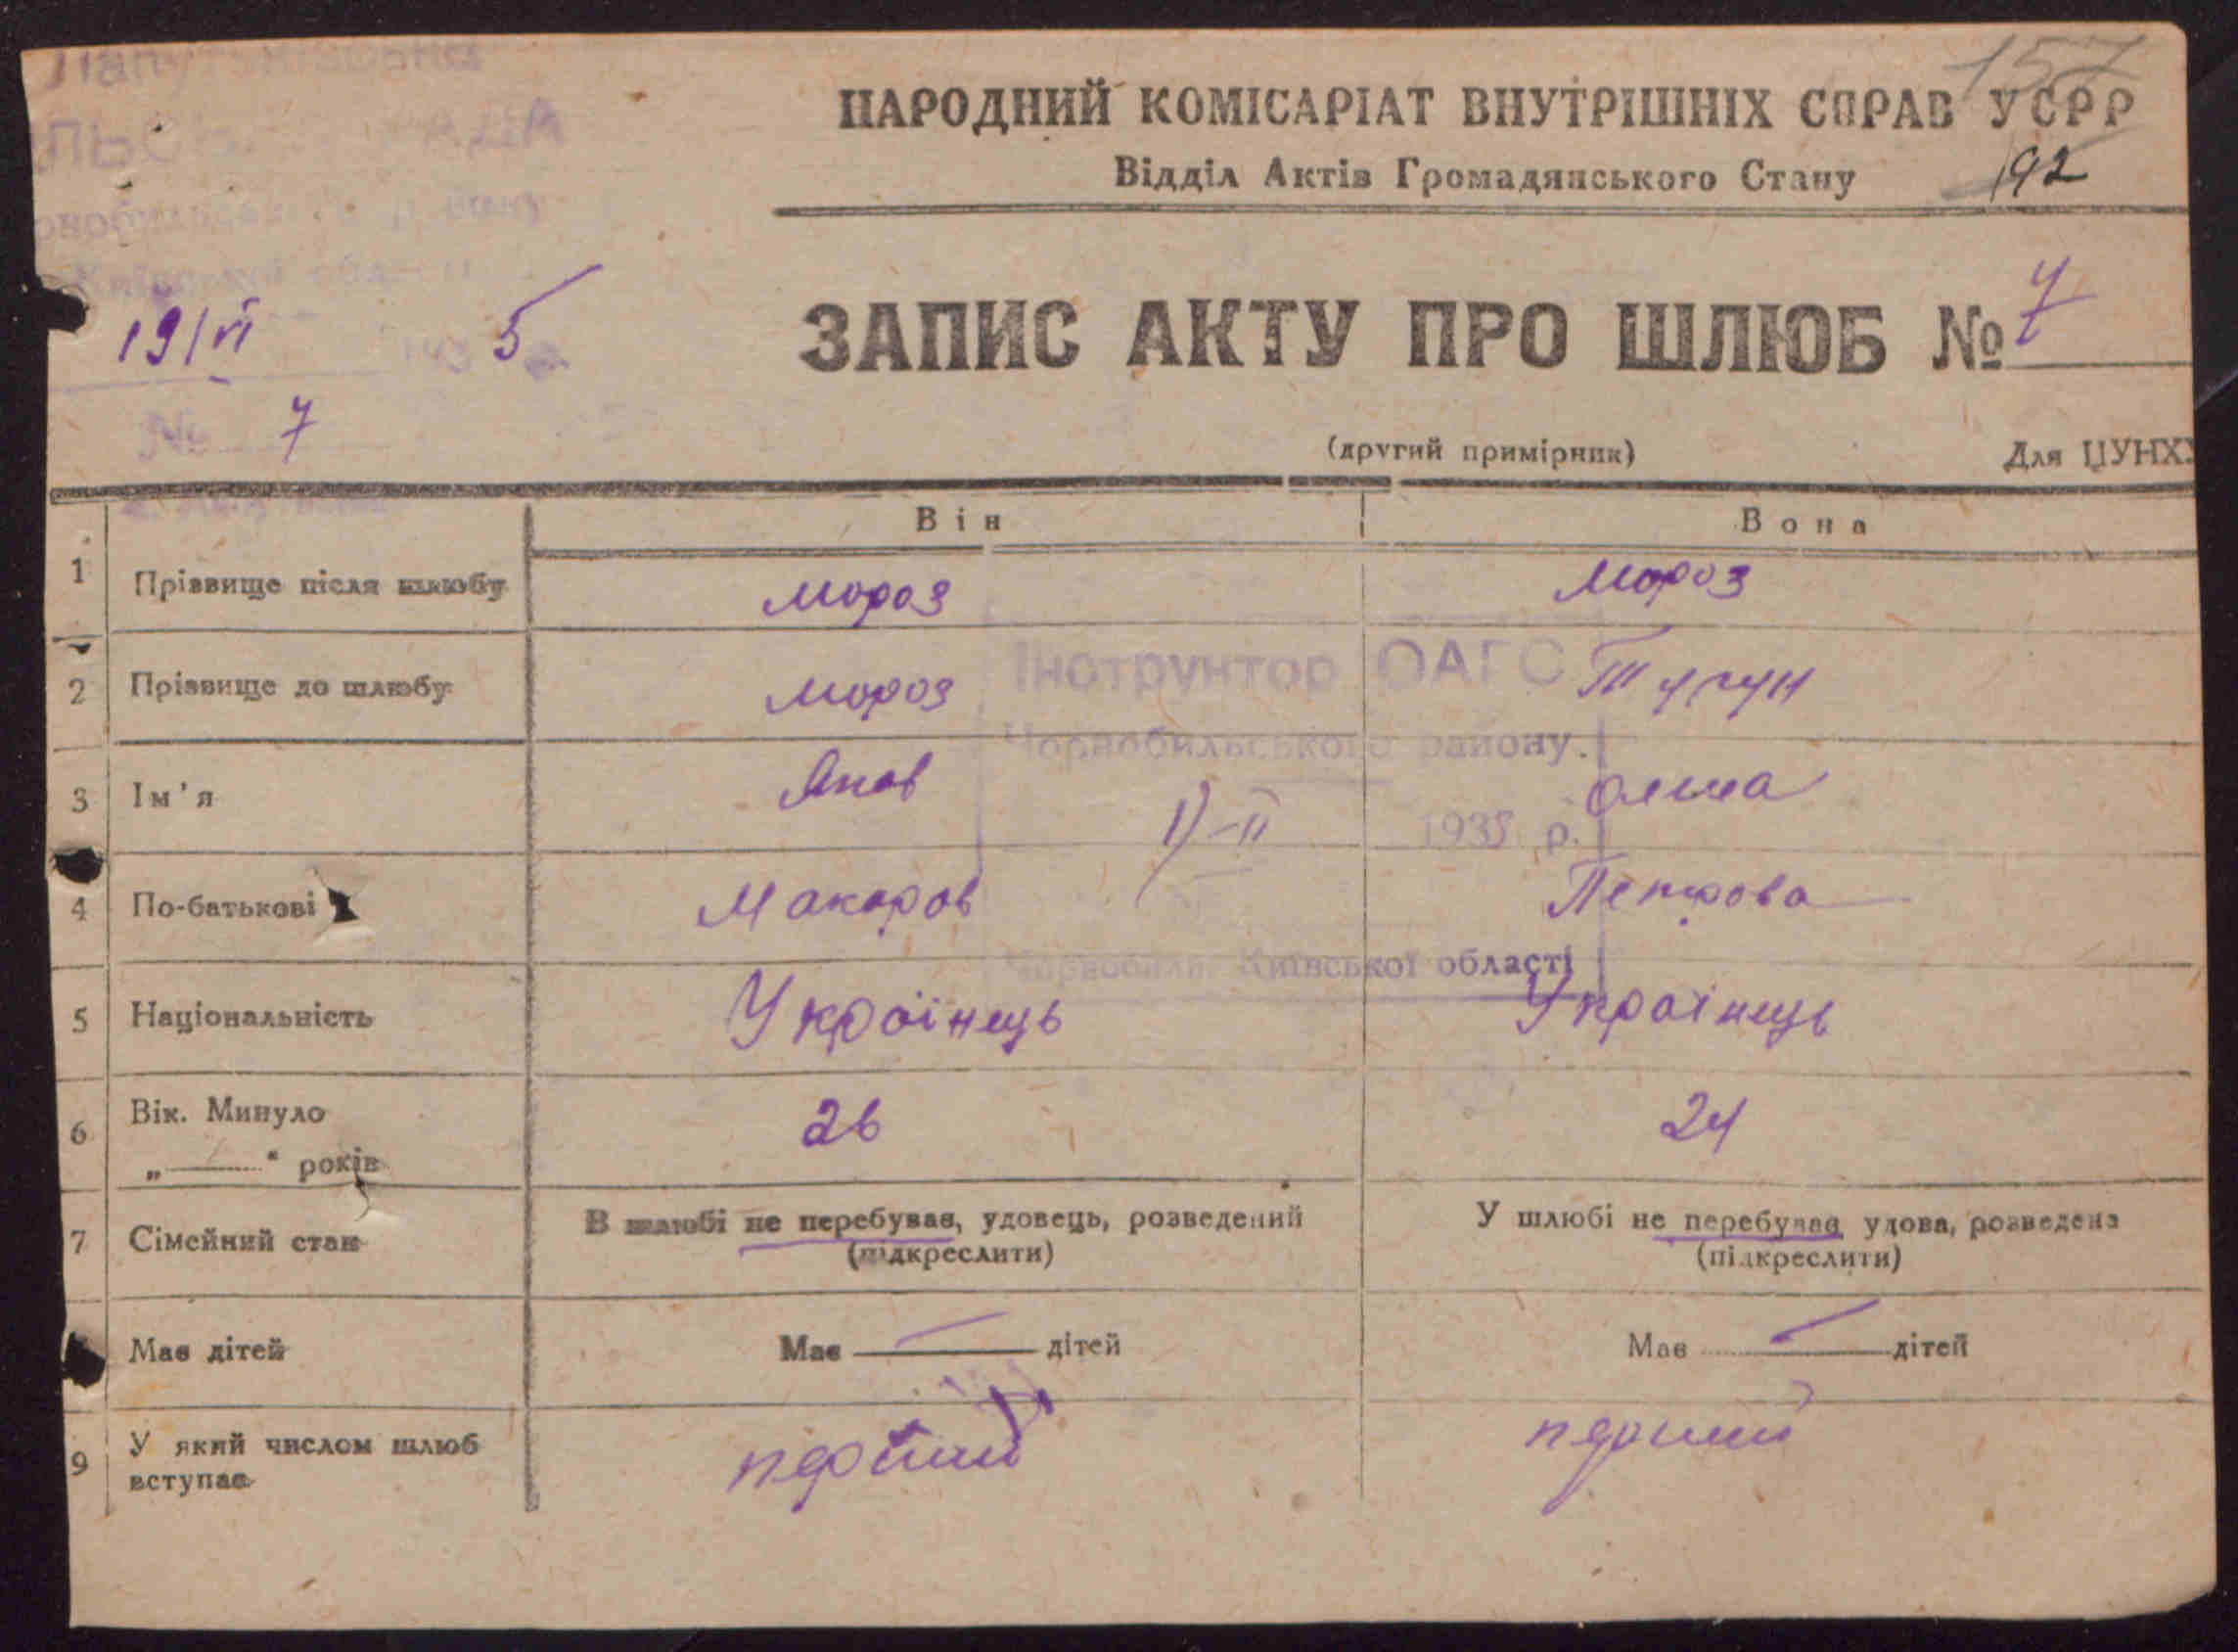 157
НАРОДНИЙ КОМІСАРІАТ ВНУТРІШНІХ СПРАВ УСРР
Відділ Актів Громадянського Стану 192
19/VI 1935
ЗАПИС АКТУ ПРО ШЛЮБ № 7
№ 7
(другий примірник) Для ЦУНХУ
Він Вона
1 Прізвище після шлюбу Мороз Мороз
Інструктор ОАГС
2 Прізвище до шлюбу Мороз
Чорнобильського району.
3 Ім'я Яков
1935 р.
4 По-батькові Макаров Петрова
Чорнобиль Київської області
5 Національність Україінець Украінець
6 Вік. Минуло 26 24
„ “ років
7 Сімейний стан В шлюбі не перебував, удовець, розведений У шлюбі не перебував, удова, розведена
(підкреслити) (підкреслити)
Має дітей Має — дітей Має — дітей
9 У який числом шлюб перший перший
вступає